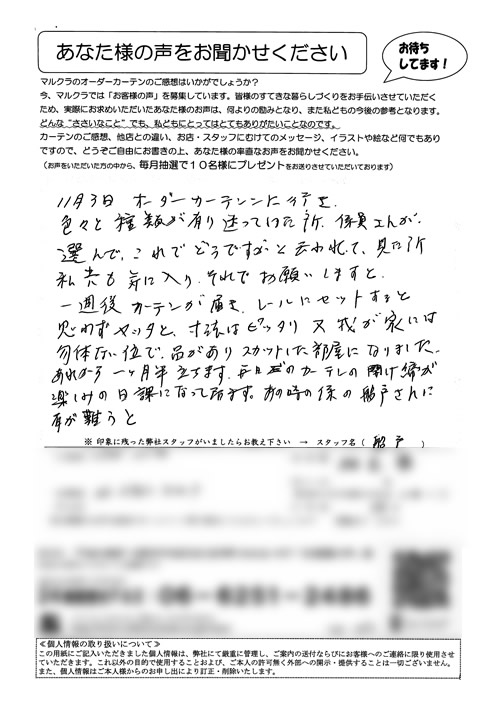 あなた様の声をお聞かせください
お待ち
してます！
マルクラのオーダーカーテンのご感想はいかがでしょうか？
今、マルクラでは「お客様の声」を募集しています。皆様のすてきな暮らしづくりをお手伝いさせていただく
ため、実際にお求めいただいたあなた様のお声は、何よりの励みとなり、また私どもの今後の参考となります。
どんな“ささいなこと”でも、私どもにとってはとてもありがたいことなのです。
カーテンのご感想、他店との違い、お店・スタッフにむけてのメッセージ、イラストや絵など何でもあり
ですので、どうぞご自由にお書きの上、あなた様の率直なお声をお聞かせください。
（お声をいただいた方の中から、毎月抽選で１０名様にプレゼントをお送りさせていただいております）
11月3日 オーダーカーテンに行き
色々と種類が有り迷っていた所、係員さんが
選んで、これでどうですかと云われて、見た所
私共も気に入り、それでお願いしますと、
一週後カーテンが届き、レールにセットすると
思わずヤッタと、寸法はピッタリ 又我が家には
勿体ない位で、品がありスカットした部屋になりました。
あれから一ヶ月半立ちます、毎日のカーテンの開け締が
楽しみの日課になって居ます。あの時の係の船戸さんに
有難うと
※ 印象に残った弊社スタッフがいましたらお教え下さい → スタッフ名（ 船戸 ）
≪個人情報の取り扱いについて≫
この用紙にご記入いただきました個人情報は、弊社にて厳重に管理し、ご案内の送付ならびにお客様へのご連絡に限り使用させ
ていただきます。これ以外の目的で使用することおよび、ご本人の許可無く外部への開示・提供することは一切ございません。
また、個人情報はご本人様からのお申し出により訂正・削除いたします。